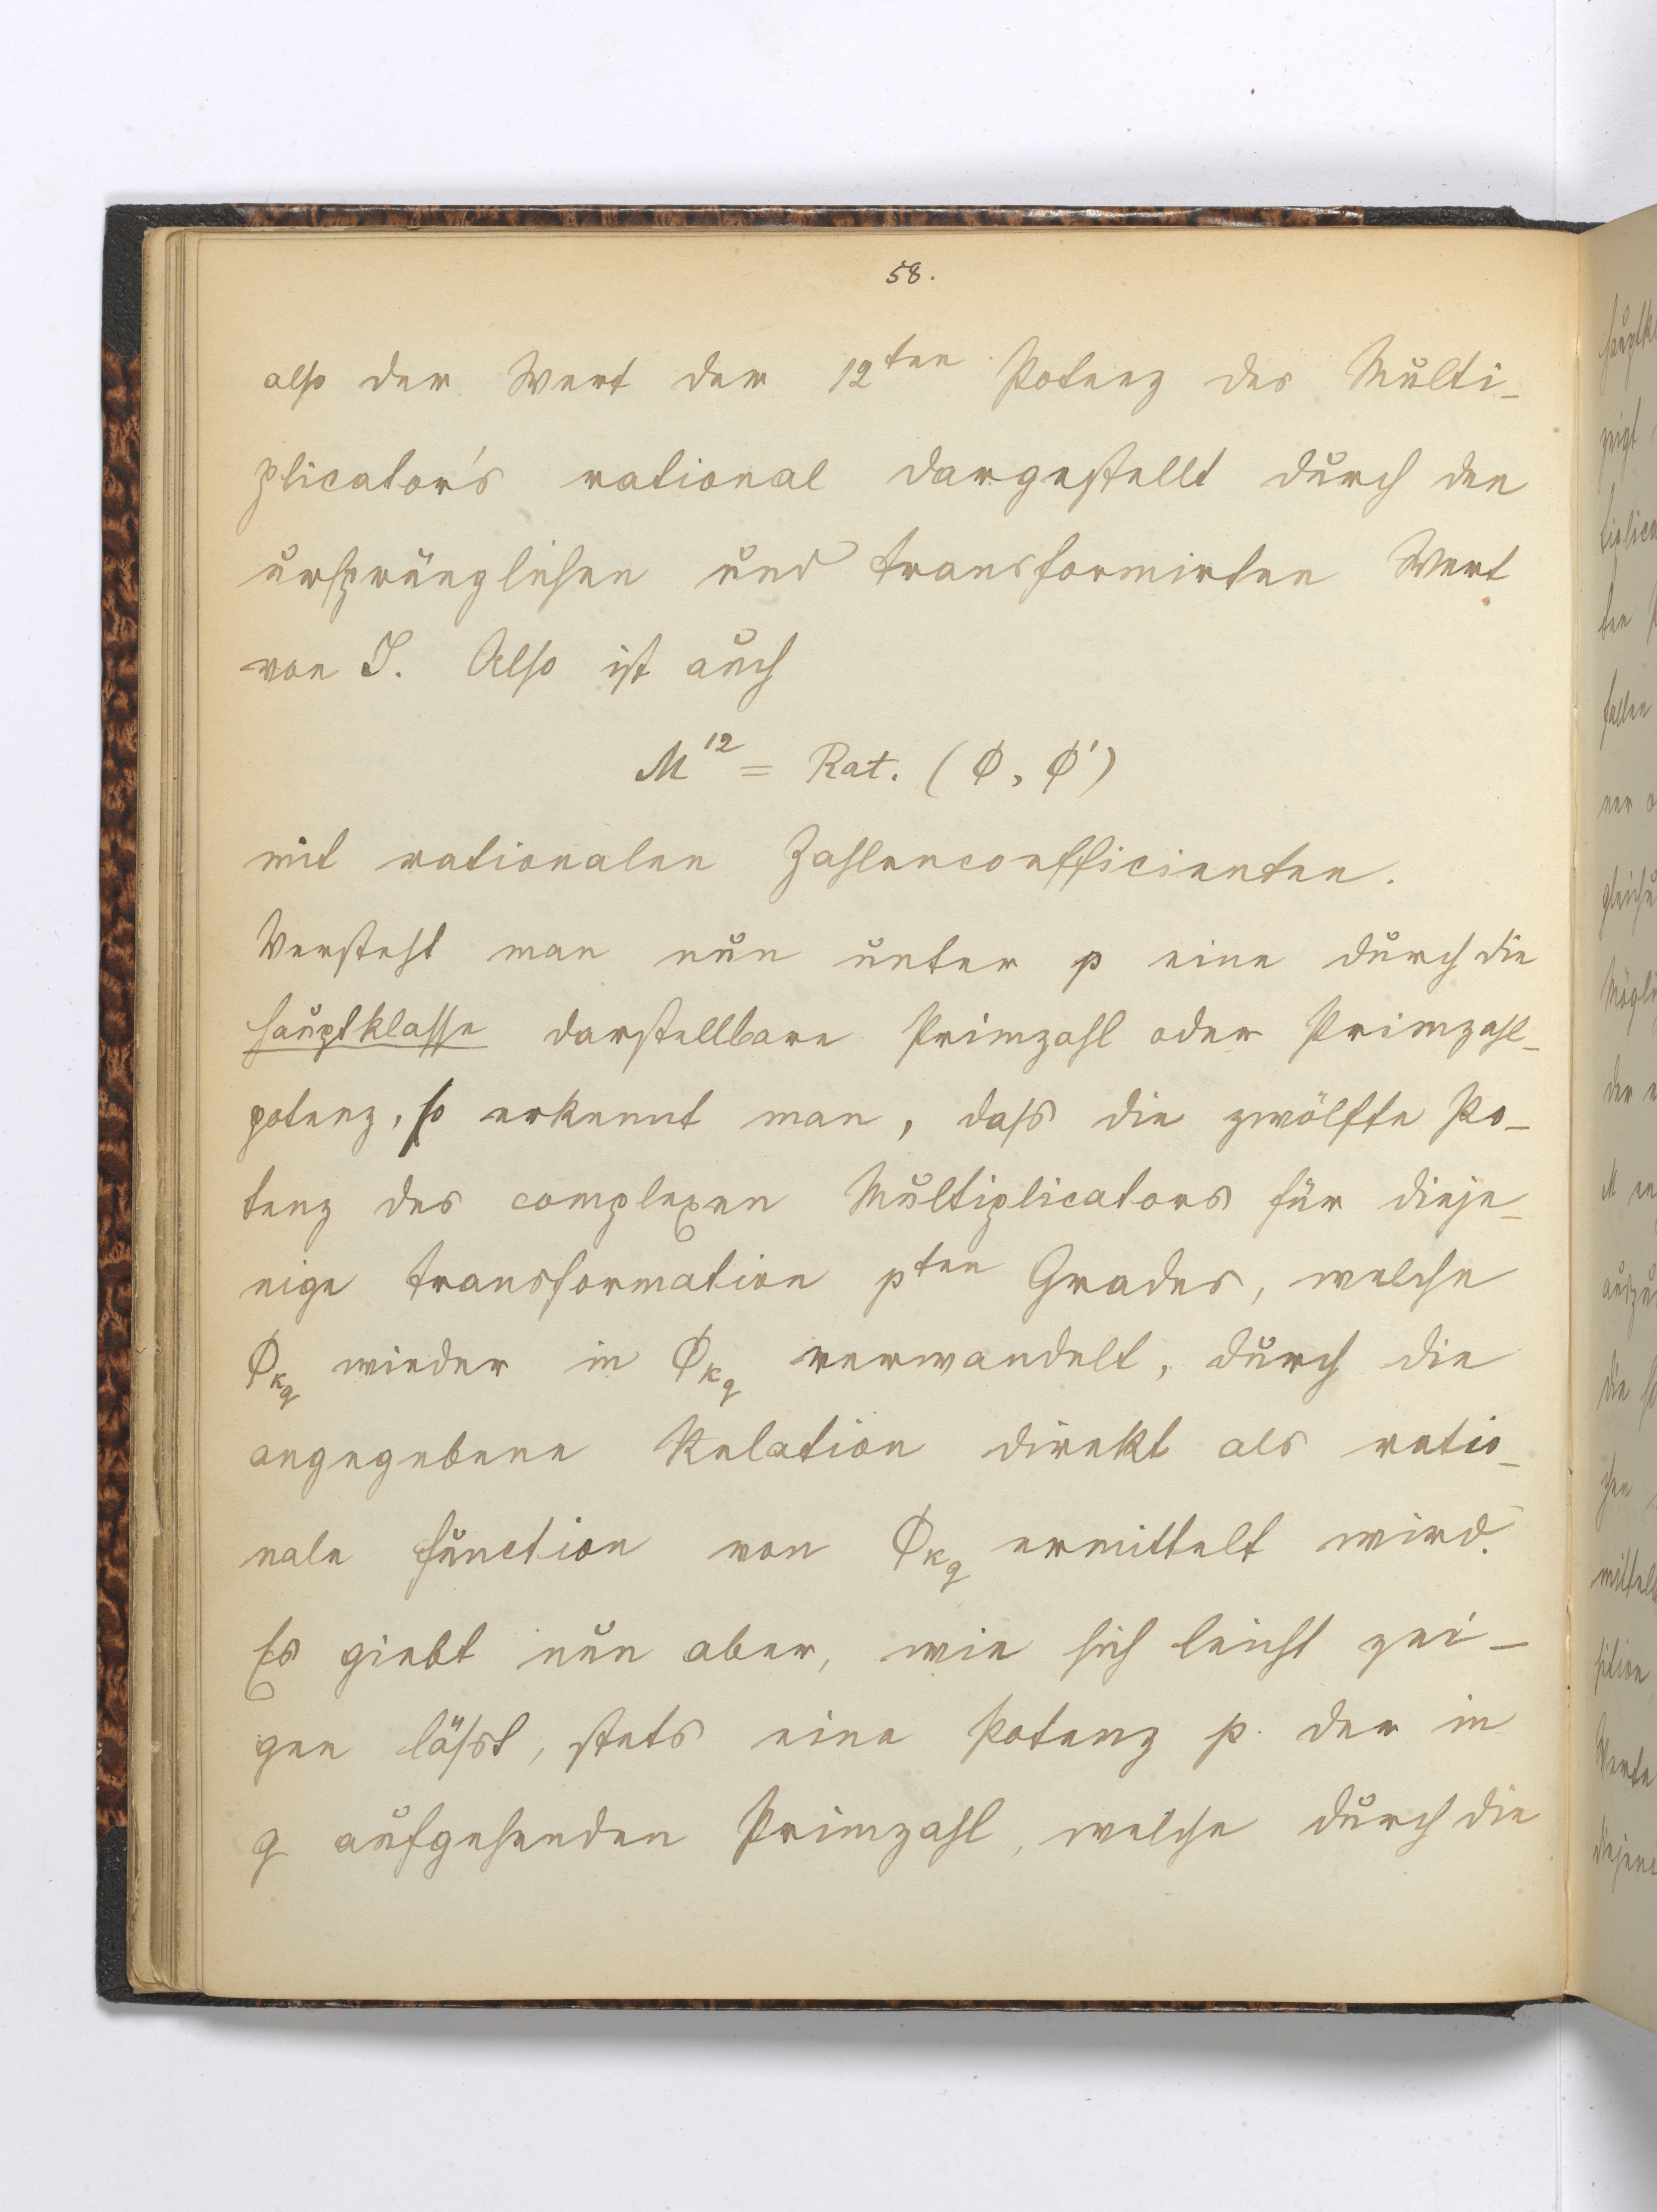 58.
also der Wert der 12ten Potenz des Multi-
plicator's rational dargestellt durch den
ursprünglichen und transformirten Wert
von J. Also ist auch
M^12 = Rat. (ϕ, ϕ')
mit rationalen Zahlencoefficienten.
Versteht man nun unter p eine durch die
Hauptklasse darstellbare Primzahl oder Primzahl-
potenz, so erkennt man, dass die zwölfte Po-
tenz des complexen Multiplicators für dieje-
nige Transformation pten Grades, welche
ϕ_kq wieder in ϕ_kq verwandelt, durch die
angegebene Relation direkt als ratio-
nale Function von ϕ_kq ermittelt wird.
Es giebt nun aber, wie sich leicht zei-
gen lässt, stets eine Potenz p der in
q aufgehenden Primzahl, welche durch die